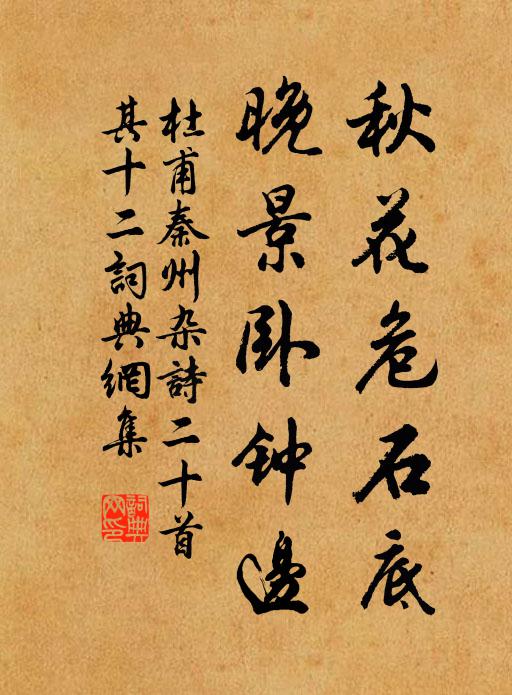 秋花危石底
晚景卧钟邊
杜甫秦州杂詩二十首
其十二詞典網集
詞典
网印